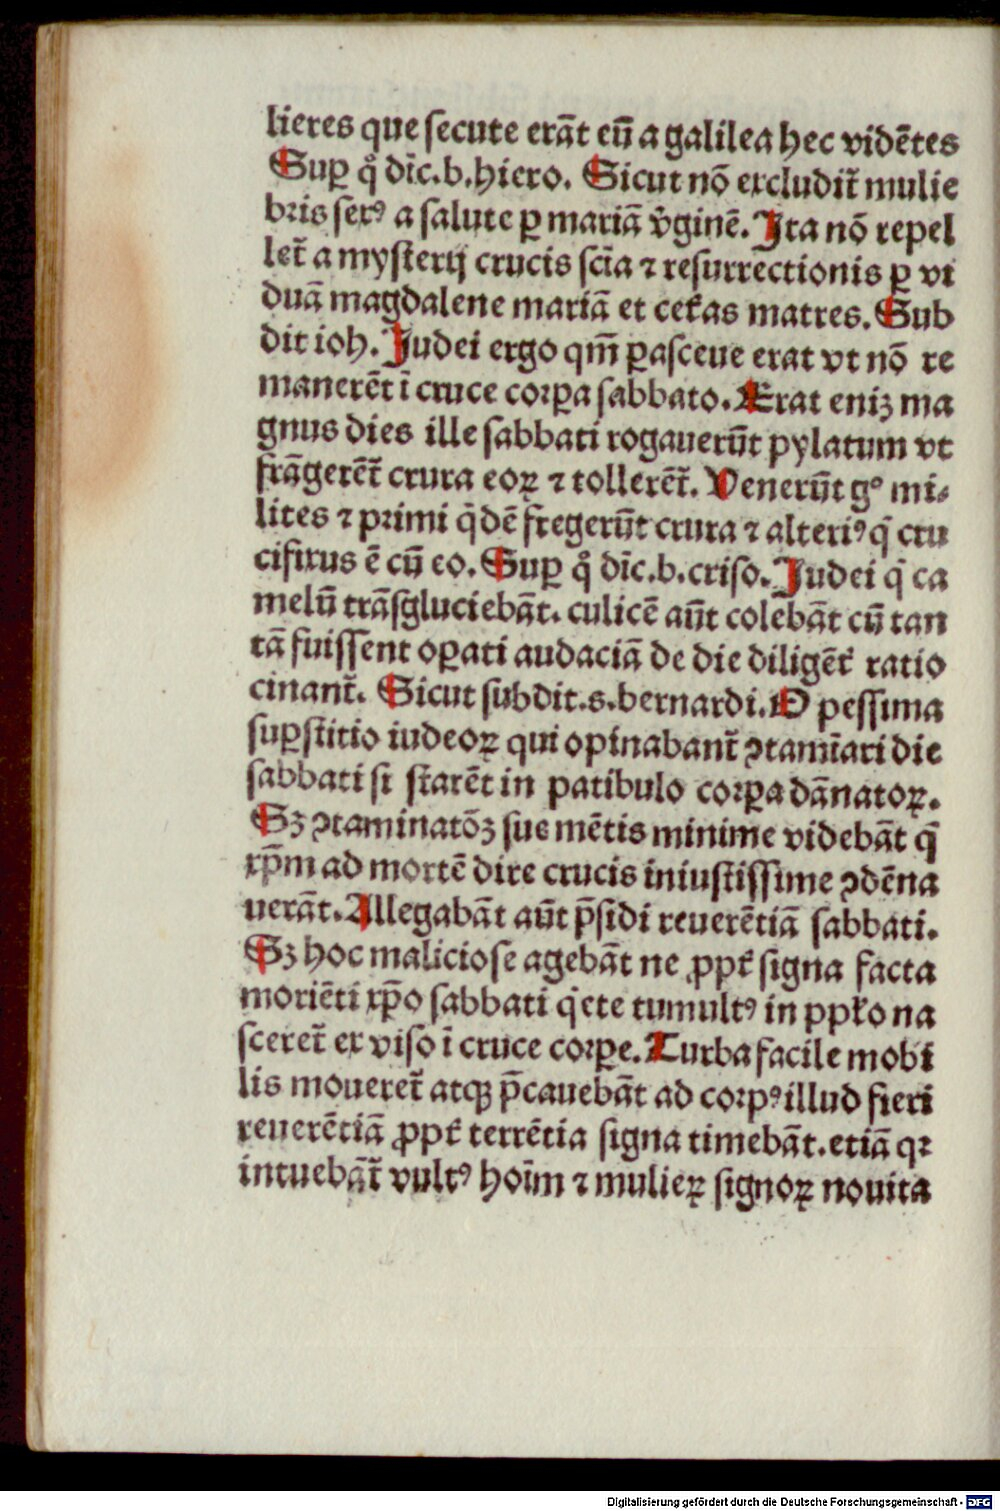 lieres que secute erāt eū a galilea hec vidētes
Suꝑ qͦ dīc.b.hiero. Sicut nō excludit̄ mulie
bꝛis serꝰ a salute ꝑ mariā v̄ginē. Ita nō repel
let̄ a mysterij crucis scīa ⁊ resurrectionis ꝑ vi
duā magdalene mariā et cet̄as matres. Sub
dit ioh. Judei ergo qm̄ ꝑasceue erat vt nō re
manerēt ī cruce coꝛꝑa sabbato. Erat eniꝫ ma
gnus dies ille sabbati rogauerūt pylatum vt
frāgerēt̄ crura eoꝝ ⁊ tollerēt̄. Venerūt gͦ mi⸗
lites ⁊ pꝛimi q̇dē fregerūt crura ⁊ alteriꝰ q̇ cru
cifixus ē cū eo. Suꝑ qͦ dīc.b.criso. Judei q̇ ca
melū trāsgluciebāt. culicē aūt colebāt cū tan
tā fuissent oꝑati audaciā de die diligēt̄ ratio
cinant̄. Sicut subdit.s.bernardi. O pessima
suꝑstitio iudeoꝝ qui opinabant̄ ꝯtamīari die
sabbati si starēt in patibulo coꝛꝑa dānatoꝝ.
Sꝫ ꝯtaminatōꝫ sue mētis minime videbāt q̄
xp̄m ad mortē dire crucis iniustissime ꝯdēna
uerāt. Allegabāt aūt p̄sidi reuerētiā sabbati.
Sꝫ hoc maliciose agebāt ne ꝓpt̄ signa facta
moriēti xp̄o sabbati q̇ete tumultꝰ in ppl̄o na
sceret̄ ex viso ī cruce coꝛꝑe. Turba facile mobi
lis moueret̄ atqꝫ p̄cauebāt ad coꝛpꝰ illud fieri
reuerētiā ꝓpt̄ terrētia signa timebāt. etiā qꝛ
intuebāt̄ vultꝰ hoīm ⁊ mulieꝝ signoꝝ nouita
Digitalisierung gefördert durch die Deutsche Forschungsgemeinschaft - DFG